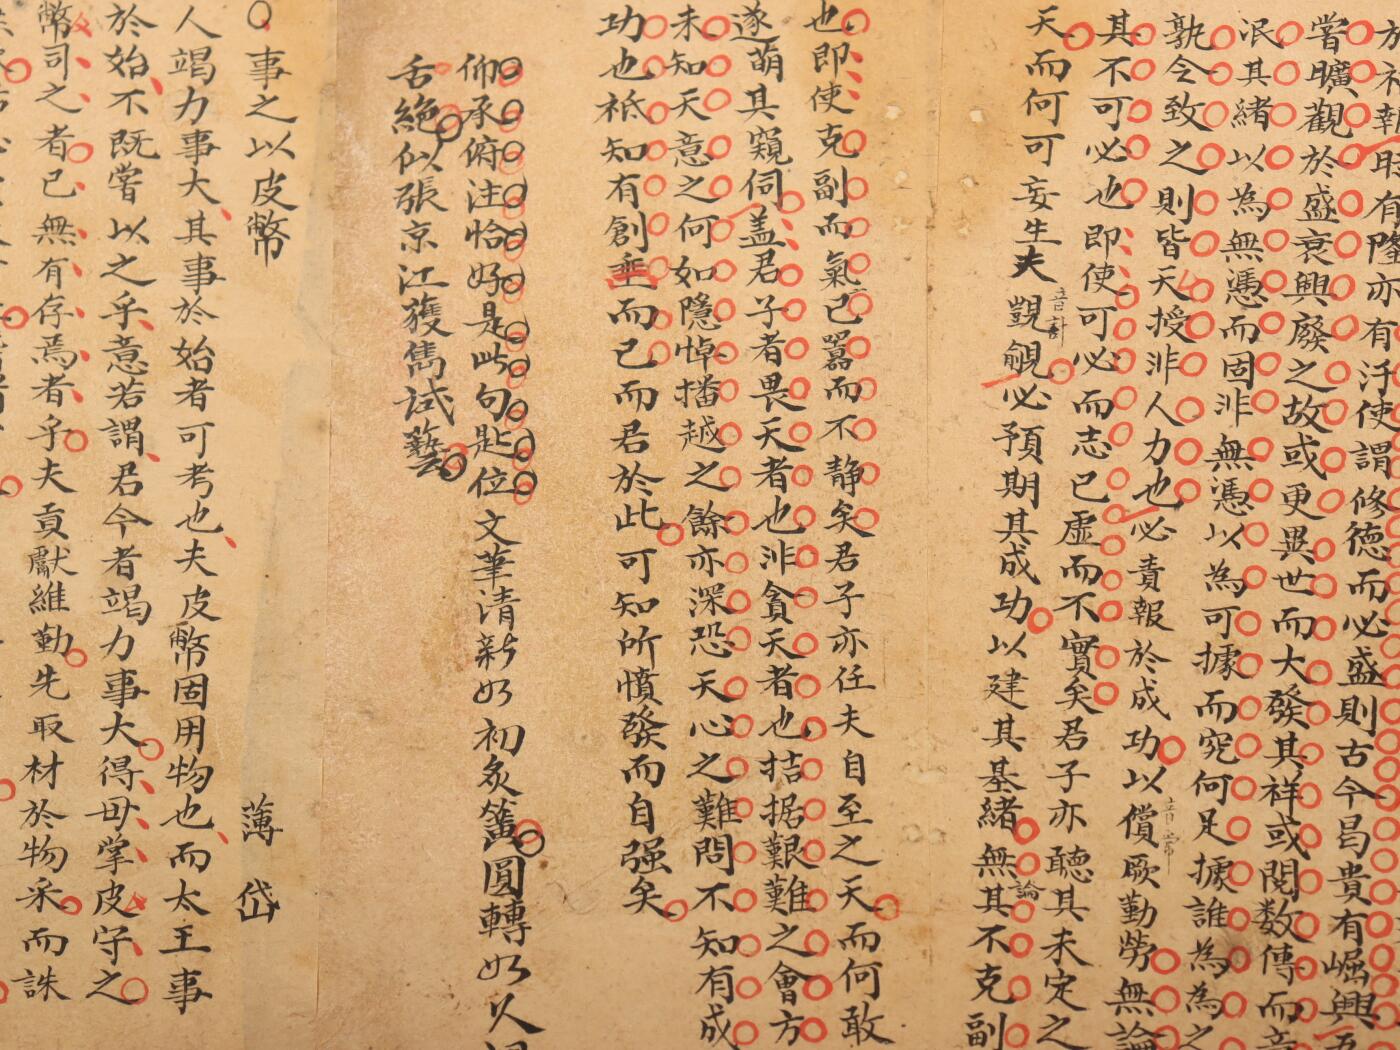 於
報
有隆亦有汙使謂修德而必盛則古今曷貴有崛興
嘗曠觀於盛衰興廢之故或更異世而大發其祥或閱数傳而
泯其緒以為無憑而固非無憑以為可據而究何足據誰為為之
孰令致之則皆天授非人力也必責報於成功以償厥勤勞無論
音常
其不可必也即使可必而志已虛而不實矣君子亦聽其未定之
天而何可妄生夫覬覦必預期其成功以建其基緒無論其不克副
音計
也即使克副而氣已囂而不静矣君子亦任夫自至之天而何敢
遂萌其窺伺盖君子者畏天者也非貪天者也拮据艱難之會方
未知天意之何如隱悼播越之餘亦深恐天心之難問不知有成
功也祇知有創垂而已而君於此可知所憤發而自强矣
仰承俯注恰好是此句匙位文筆清新如初炙簧圓轉如久
舌絶似張京江獲雋試藝
事之以皮幣 薄岱
人竭力事大其事於始者可考也夫皮幣固用物也而太王事
於始不既嘗以之乎意若謂君今者竭力事大得毋掌皮守之
幣司之者已無有存焉者乎夫貢獻維勤先取材於物采而誅